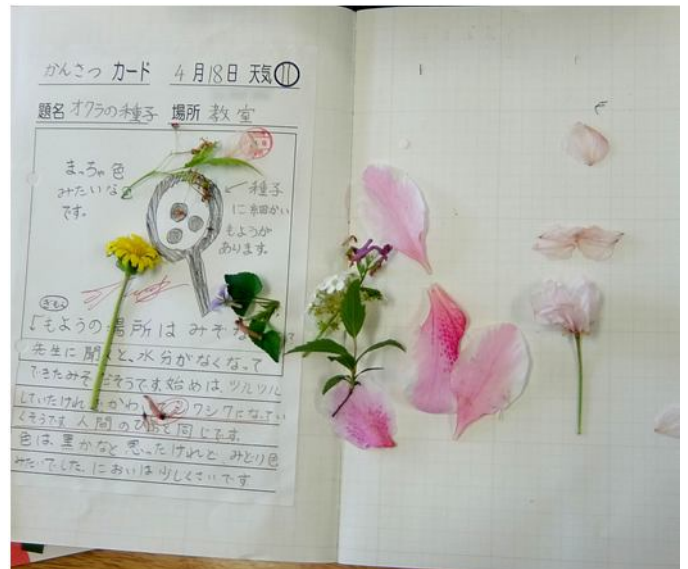 かんさつ カード 4月18日 天気
題名 オクラの種子 場所 教室
まっちゃ色
みたいな色
です。
←種子
に細かい
もようが
あります。
ぎもん
↓もようの場所は みぞな
先生に聞くと、水分がなくなって
できたみぞだそうです。始めは、ツルツル
していたけれ かわ シワになってい
くそうです。人間の と同じです。
色は、黒かなと思ったけれど みどり色
みたいでした。においは少しくさいです